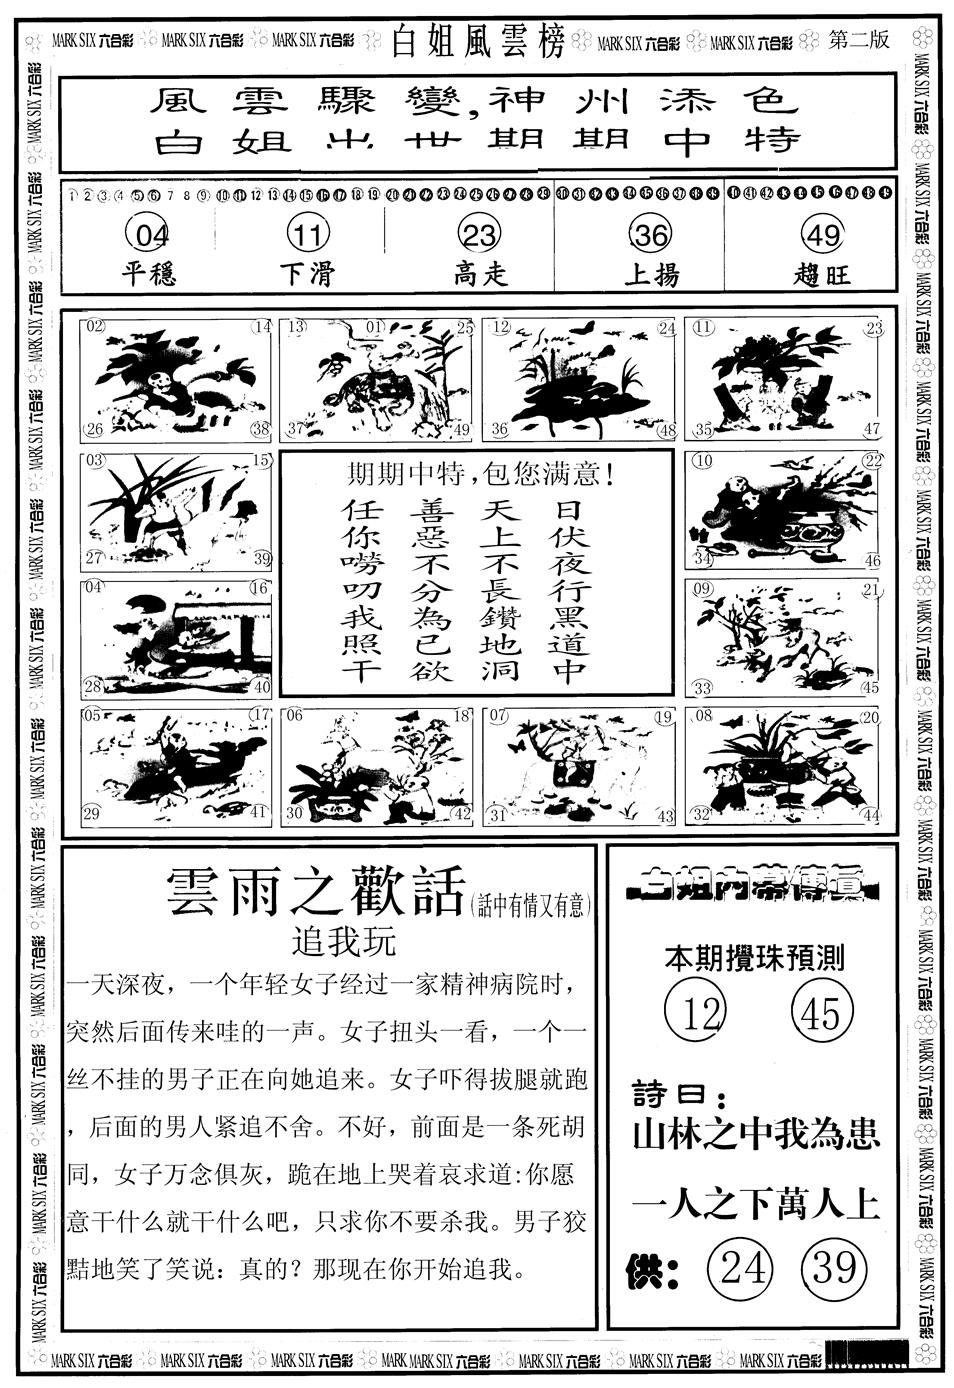 MARK SIX 六合彩 MARK SIX 六合彩 MARK SIX 六合彩 白姐風雲榜 MARK SIX 六合彩 MARK SIX 六合彩 第二版
風雲驟變,神州添色
白姐出世期期中特
1 2 3 4 5 6 7 8 9 10 11 12 13 14 15 16 17 18 19 20 21 22 23 24 25 26 27 28 29 30 31 32 33 34 35 36 37 38 39 40 41 42 43 44 45 46 47 48 49
04 11 23 36 49
平穩 下滑 高走 上揚 趨旺
02 14 13 01 25 12 24 11 23
26 38 37 49 36 48 35 47
03 15
27 39
04 16
28 40
期期中特,包您满意!
日伏夜行黑道中
天上不長鑽地洞
善惡不分為已欲
任你嘮叨我照干
10 22
34 46
09 21
33 45
05 17 06 18 07 19 08 20
29 41 30 42 31 43 32 44
雲雨之歡話(話中有情又有意)
追我玩
一天深夜，一个年轻女子经过一家精神病院时，
突然后面传来哇的一声。女子扭头一看，一个一
丝不挂的男子正在向她追来。女子吓得拔腿就跑
，后面的男人紧追不舍。不好，前面是一条死胡
同，女子万念俱灰，跪在地上哭着哀求道:你愿
意干什么就干什么吧，只求你不要杀我。男子狡
黠地笑了笑说：真的？那现在你开始追我。
白姐内幕傳真
本期攪珠預測
12 45
詩曰：
山林之中我為患
一人之下萬人上
供： 24 39
MARK SIX 六合彩 MARK SIX 六合彩 MARK SIX 六合彩 MARK MARK SIX 六合彩 MARK SIX 六合彩 MARK SIX 六合彩 MARK SIX 六合彩